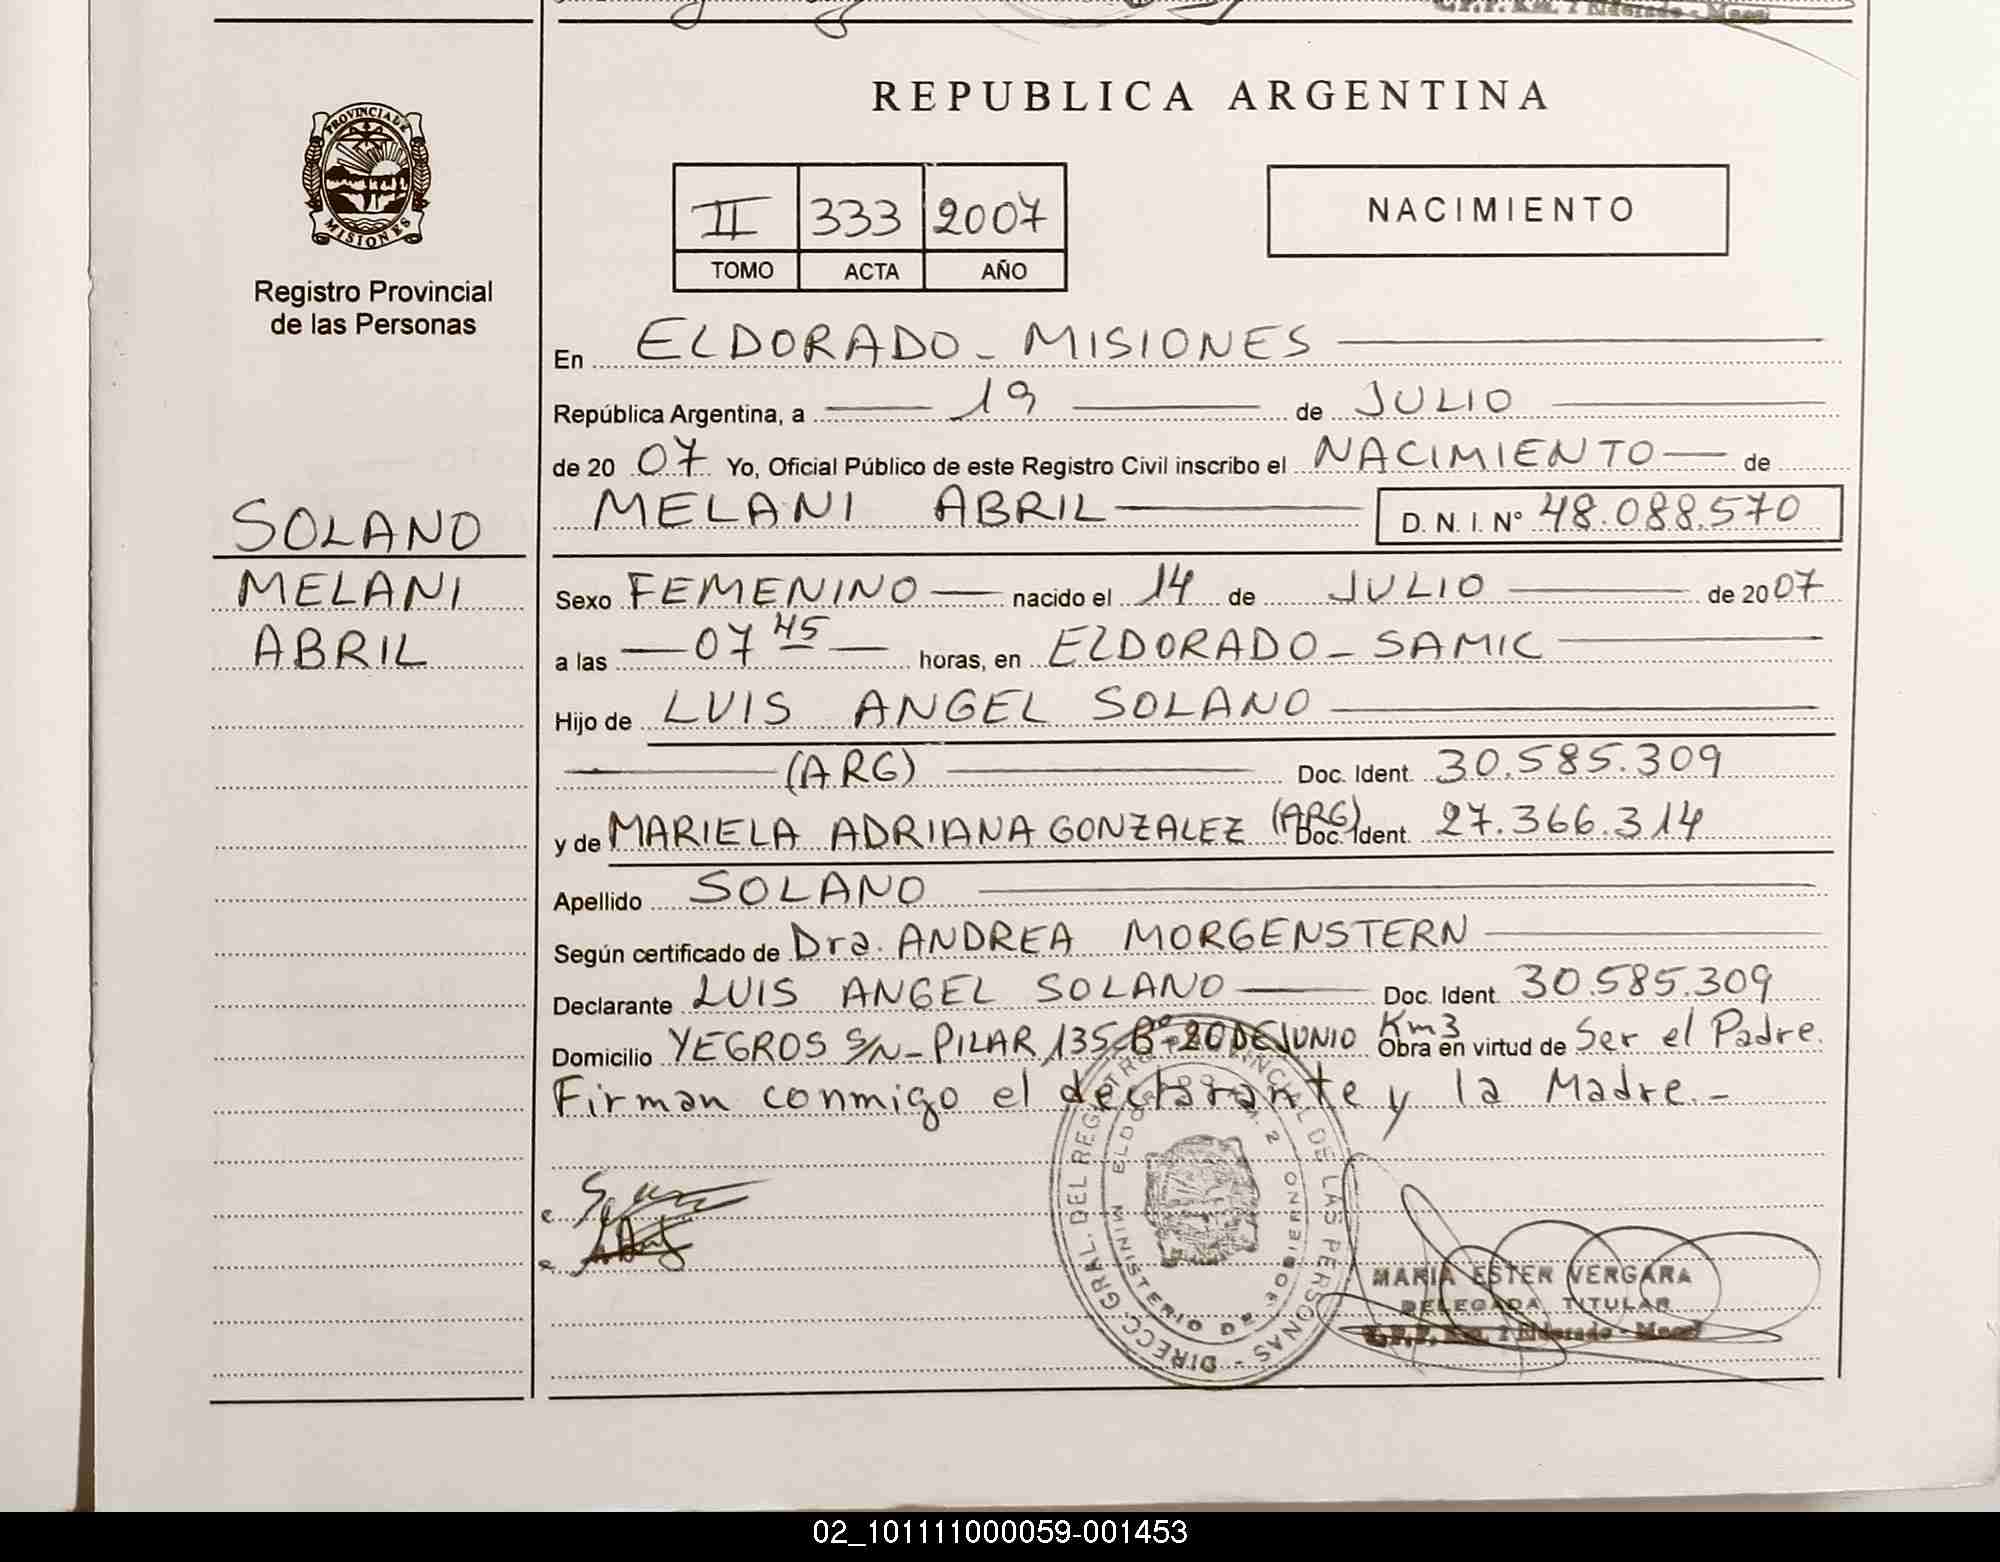 REPUBLICA ARGENTINA
PROVINCIA DE
MISIONES
Registro Provincial
de las Personas
II 333 2007
TOMO ACTA AÑO
NACIMIENTO
En ELDORADO - MISIONES
República Argentina, a 19 de JULIO
de 20 07 Yo, Oficial Público de este Registro Civil inscribo el NACIMIENTO de
MELANI ABRIL D. N. I. Nº 48.088.570
SOLANO
MELANI
ABRIL
Sexo FEMENINO nacido el 14 de JULIO de 2007
a las 07 45 horas, en ELDORADO - SAMIC
Hijo de LUIS ANGEL SOLANO
(ARG) Doc. Ident. 30.585.309
y de MARIELA ADRIANA GONZALEZ (ARG) Doc. Ident. 27.366.314
Apellido SOLANO
Según certificado de Dra. ANDREA MORGENSTERN
Declarante LUIS ANGEL SOLANO Doc. Ident. 30.585.309
Domicilio YEGROS S/N - PILAR 135 - Bº 20 DE JUNIO Km3 Obra en virtud de Ser el Padre.
Firman conmigo el declarante y la Madre. -
DIRECC. GRAL. DEL REGISTRO PROVINCIAL DE LAS PERSONAS
MINISTERIO DE GOBIERNO
MARIA ESTER VERGARA
DELEGADA TITULAR
02_101111000059-001453